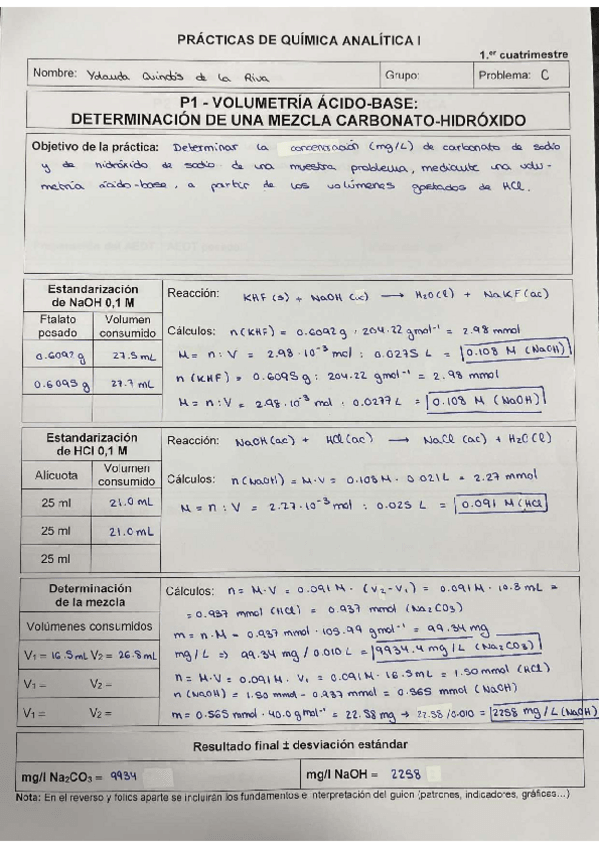 PRÁCTICAS DE QUÍMICA ANALÍTICA I
1.er cuatrimestre
Nombre: Yolanda Quindós de la Riva Grupo: Problema: C
P1 - VOLUMETRÍA ÁCIDO-BASE:
DETERMINACIÓN DE UNA MEZCLA CARBONATO-HIDRÓXIDO
Objetivo de la práctica: Determinar la concentración (mg/L) de carbonato de sodio
y de hidróxido de sodio de una muestra problema, mediante una volu-
metría ácido-base, a partir de los volúmenes gastados de HCl.
Estandarización
de NaOH 0,1 M
Reacción: KHF (s) + NaOH (ac) ⟶ H2O(l) + NaKF(ac)
Ftalato pesado Volumen consumido
Cálculos: n(KHF) = 0.6092 g : 204.22 gmol⁻¹ = 2.98 mmol
0.6092 g 27.5 mL
M = n : V = 2.98·10⁻³ mol : 0.0275 L = 0.108 M (NaOH)
0.6095 g 27.7 mL
n (KHF) = 0.6095 g : 204.22 gmol⁻¹ = 2.98 mmol
M = n : V = 2.98·10⁻³ mol : 0.0277 L = 0.108 M (NaOH)
Estandarización
de HCl 0,1 M
Reacción: NaOH(ac) + HCl(ac) ⟶ NaCl (ac) + H2O(l)
Alícuota Volumen consumido
Cálculos: n(NaOH) = M·V = 0.108M · 0.021L = 2.27 mmol
25 ml 21.0 mL
M = n : V = 2.27·10⁻³ mol : 0.025 L = 0.091 M (HCl)
25 ml 21.0 mL
25 ml
Determinación
de la mezcla
Cálculos: n = M·V = 0.091M · (V2-V1) = 0.091M · 10.3 mL =
= 0.937 mmol (HCl) = 0.937 mmol (Na2CO3)
Volúmenes consumidos
m = n·M = 0.937 mmol · 105.99 gmol⁻¹ = 99.34 mg
V1 = 16.5 mL V2 = 26.8 mL
mg/L ⇒ 99.34 mg / 0.010 L = 9934.4 mg/L (Na2CO3)
n = M·V = 0.091M · V1 = 0.091M · 16.5mL = 1.50 mmol (HCl)
V1 = V2 =
n (NaOH) = 1.50 mmol - 0.937 mmol = 0.565 mmol (NaOH)
V1 = V2 =
m = 0.565 mmol · 40.0 gmol⁻¹ = 22.58 mg → 22.58/0.010 = 2258 mg/L (NaOH)
Resultado final ± desviación estándar
mg/l Na2CO3 = 9934 mg/l NaOH = 2258
Nota: En el reverso y folios aparte se incluirán los fundamentos e interpretación del guion (patrones, indicadores, gráficas...)